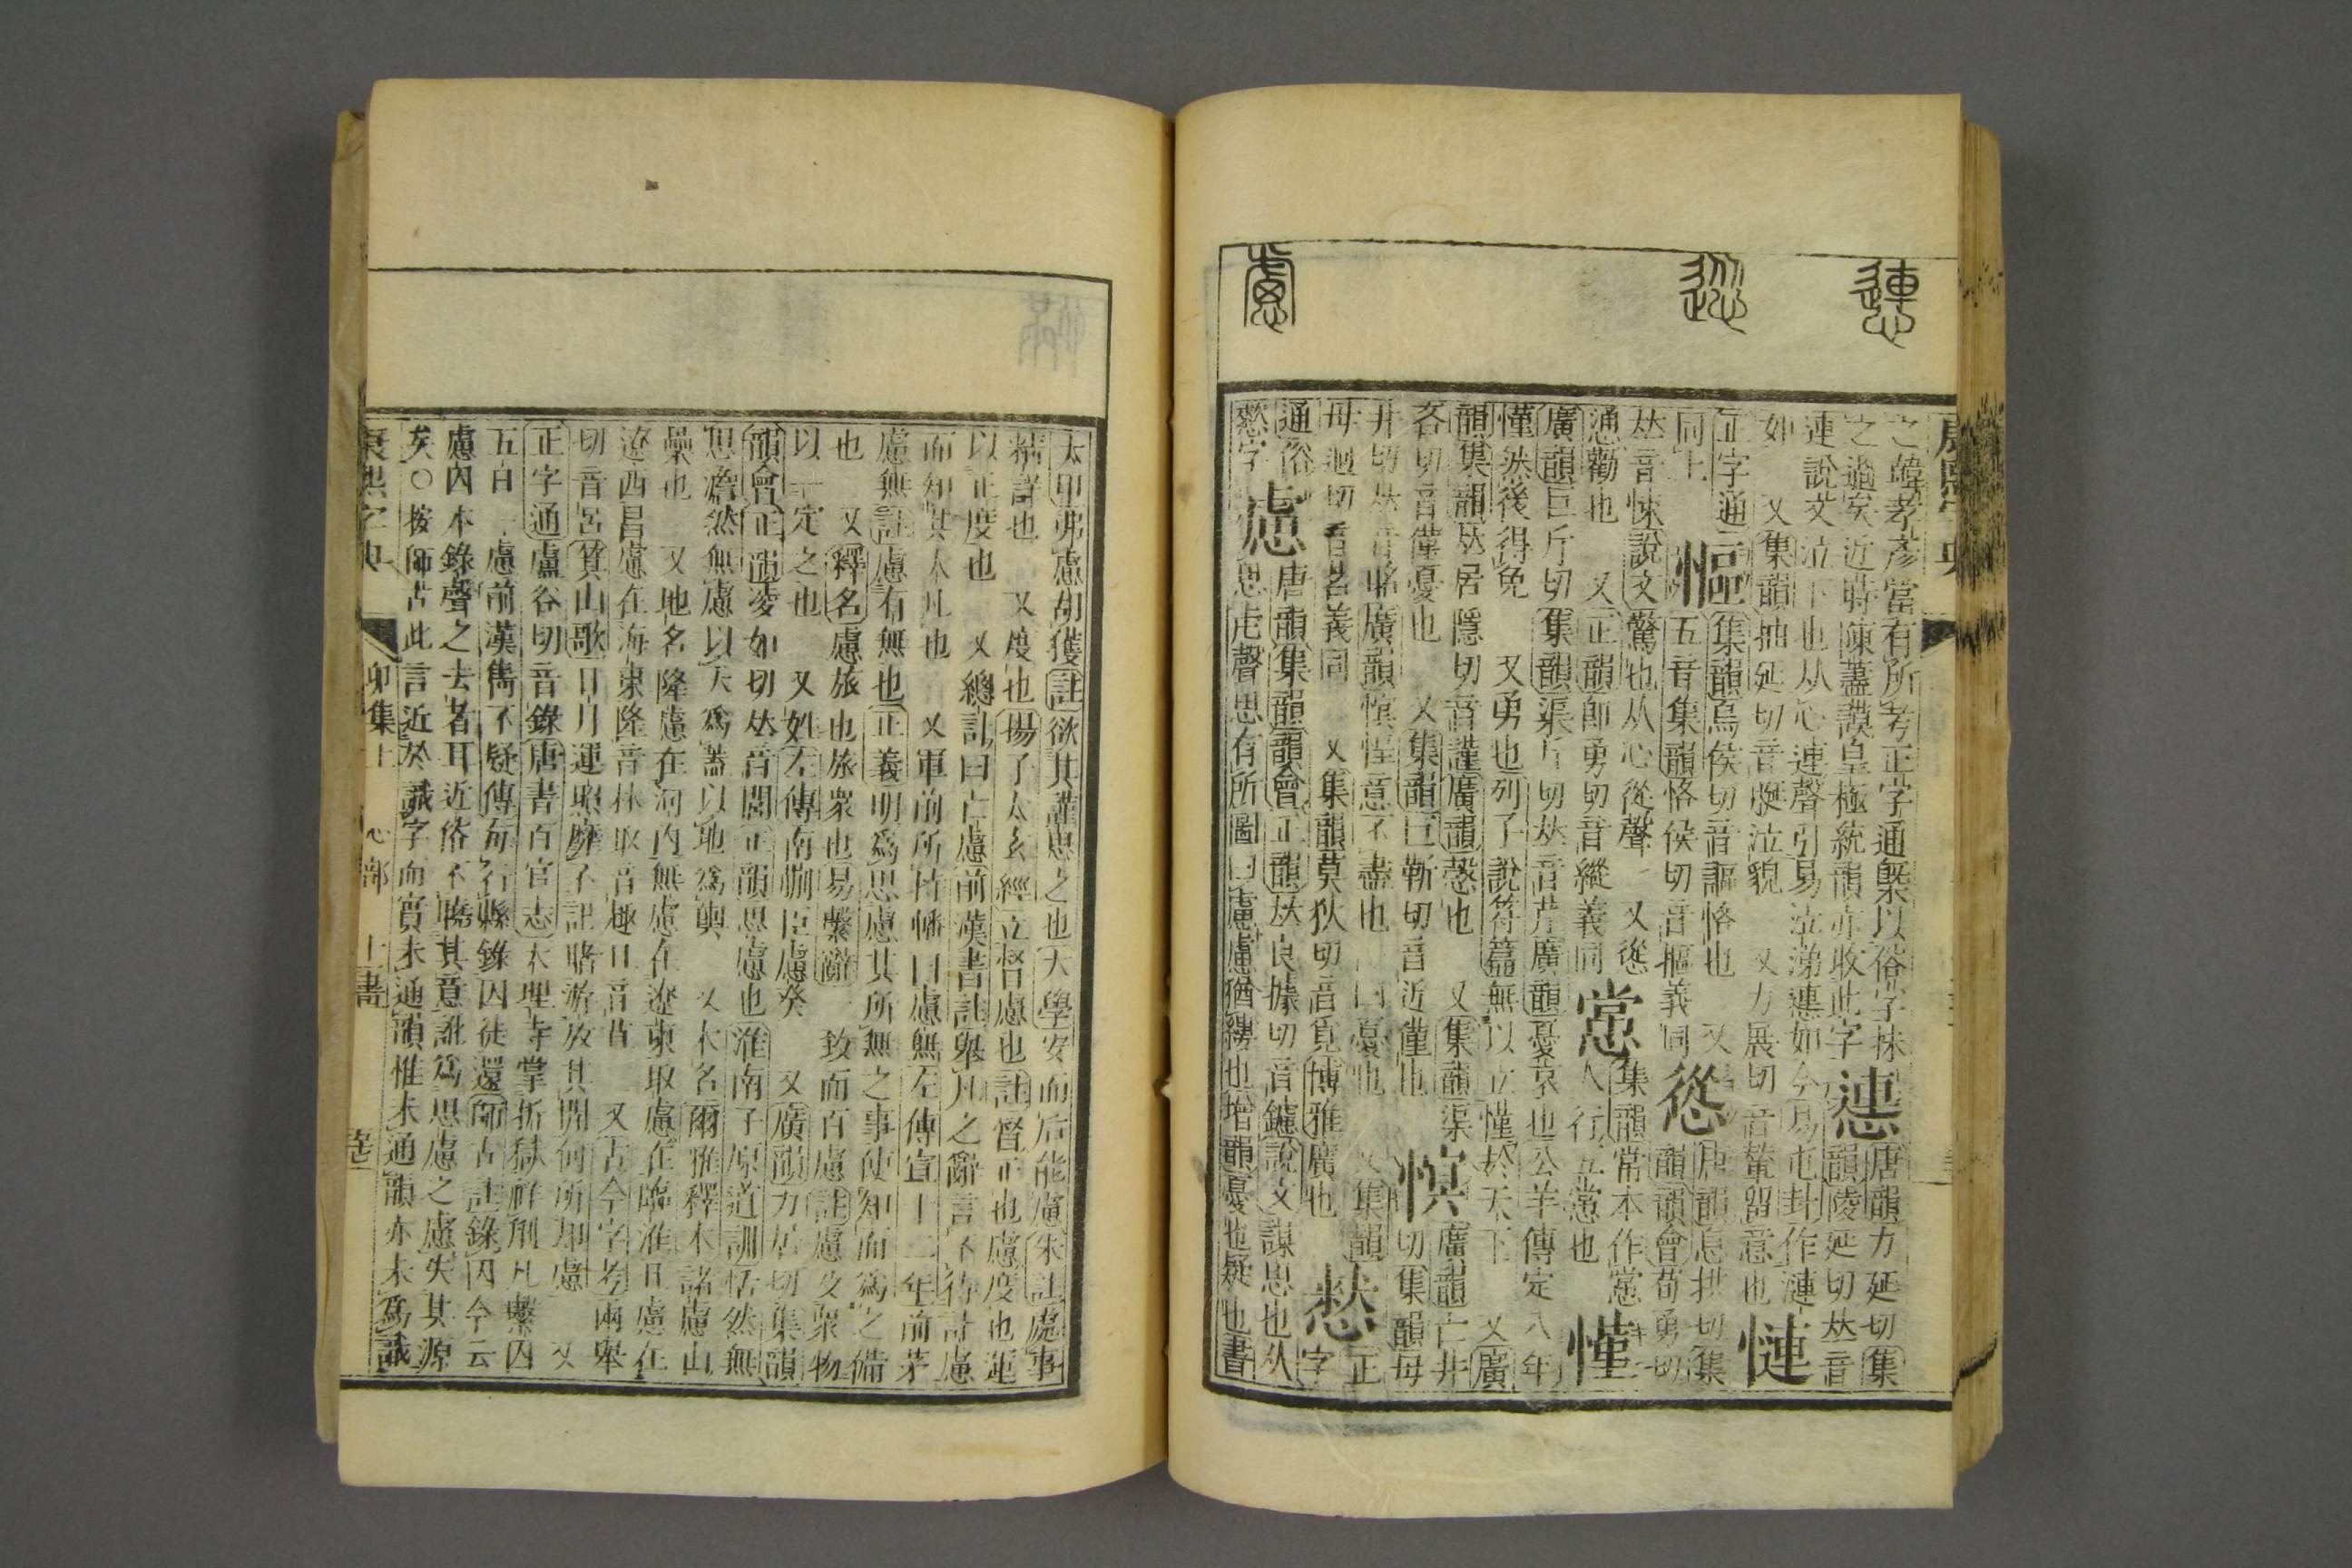 康熙字典
之韙考彥當有所考正字通槩以俗字抹㦁唐韻力延切集
之過矣近時陳藎謨皇極統韻亦收此字韻陵延切𠀤音
連說文泣下也从心連聲引易泣涕㦁如今易屯卦作漣
如 又集韻抽延切音梴泣貌 又力展切音輦留意也慩
正字通慪集韻烏侯切音謳恪也 又慫唐韻息拱切集
同上五音集韻恪侯切音摳義同韻韻會荀勇切
𠀤音悚說文驚也从心從聲 又慫㦂集韻常本作㦂慬
慂勸也 又正韻卽勇切音縱義同人行五㦂也
廣韻巨斤切集韻渠斤切𠀤音芹廣韻憂哀也公羊傳定八年
慬然後得免 又勇也列子說符篇無以立慬於天下 又廣
韻集韻𠀤居隱切音謹廣韻愨也 又集韻渠慏廣韻亡井
吝切音僅憂也 又集韻巨靳切音近僅也切集韻母
井切𠀤音䁅廣韻慏悜意不盡也 一曰憂也 又集韻慗正
母迥切音茗義同 又集韻莫狄切音覓博雅廣也字
通俗慮唐韻集韻韻會正韻𠀤良據切音鑢說文謀思也从
慗字思虍聲思有所圖曰慮慮猶縷也增韻憂也疑也書
太甲弗慮胡獲註欲其謹思之也大學安而后能慮朱註處事
精詳也 又度也揚子太玄經立督慮也註督正也慮度也
以正度也 又總計曰亡慮前漢書註舉凡之辭言不待計慮
而知其大凡也 又軍前所持幡曰慮無左傳宣十二年前茅
慮無註慮有無也正義明爲思慮其所無之事使知而爲之備
也 又釋名慮旅也旅衆也易繫辭一致而百慮註慮及衆物
以一定之也 又姓左傳南蒯臣慮癸 又廣韻力居切集韻
韻會正韻凌如切𠀤音閭正韻思慮也淮南子原道訓恬然無
思澹然無慮以天爲蓋以地爲輿 又木名爾雅釋木諸慮山
櫐也 又地名隆慮在河內無慮在遼東取慮在臨淮且慮在
遼西昌慮在海東隆音林取音趣且音苴 又古今字考兩舉
切音呂箕山歌日月運照靡不記睹游放其閒何所却慮 又
正字通盧谷切音錄唐書百官志大理寺掌折獄詳刑凡繫囚
五日一慮前漢雋不疑傳每行縣錄囚徒還師古註錄囚今云
慮囚本錄聲之去者耳近俗不曉其意訛爲思慮之慮失其源
矣○按師古此言近於識字而實未通韻惟未通韻亦未爲識
康熙字典 卯集上 心部 十一畫